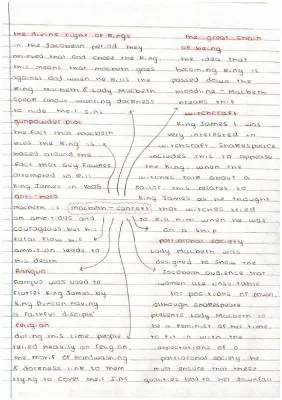 the divine right of kings
in the Jacobean period they
believed that God chose the King.
this means that Macbeth goes
against God when he kills the
King. Macbeth & Lady Macbeth
speak about wanting darkness
to hide their sins
gunpowder plot
the fact that Macbeth
kills the King is
based around the
fact that Guy Fawkes
attempted to kill
King James in 1605
anti-hero
Macbeth is
an ambitious and
courageous but his
fatal flaw is
ambition leads to
his death
Banquo
Banquo was used to
flatter King James by
King Duncan having
a faithful disciple
religion
during this time, people
relied heavily on religion,
the motif of handwashing
& darkness link to them
trying to cover their sins
macbeth - context
the great chain
of being
the idea that
becoming King is
passed down the
bloodline - Macbeth
breaks this
witchcraft
King James I was
very interested in
witchcraft. Shakespeare
includes this to appease
the King. when the
witches talk about a
sailor, this relates to
King James as he thought
that witches tried
to kill him when he was
on a ship
patriarchal society
Lady Macbeth was
designed to show the
Jacobean audience that
women are unsuitable
for positions of power
although Shakespeare
presents Lady Macbeth to
be a feminist of her time.
to fit in with the
expectations of a
patriarchal society he
must ensure that these
qualities lead to her downfall